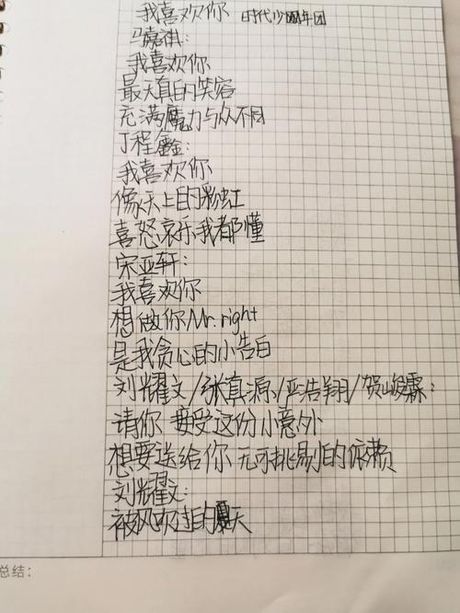 我喜欢你 时代少年团
马嘉祺:
我喜欢你
最天真的笑容
充满魔力与众不同
丁程鑫:
我喜欢你
像天上的彩虹
喜怒哀乐我都懂
宋亚轩:
我喜欢你
想做你Mr.right
是我贪心的小告白
刘耀文/张真源/严浩翔/贺峻霖:
请你 接受这份小意外
想要送给你 无可挑剔的依赖
刘耀文:
被风吹过的夏天
总结: